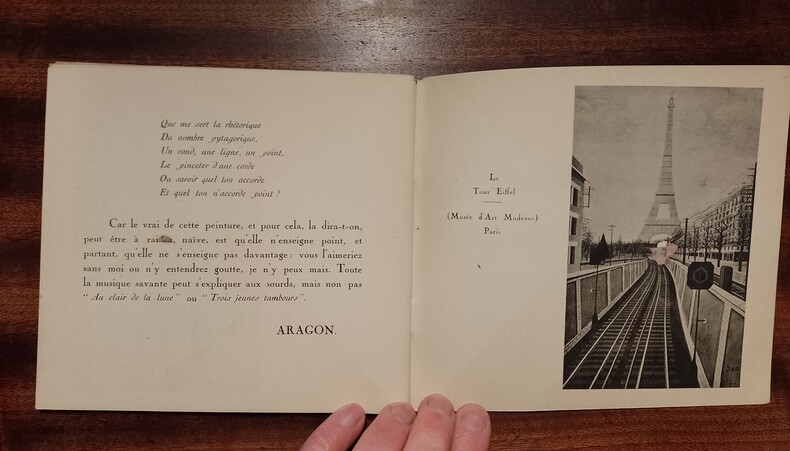 Que me sert la rhétorique
Du nombre pytagorique,
Un rond, une ligne, un point,
Le pinceter d'une corde
Ou savoir quel ton accorde
Et quel ton n'accorde point ?
Car le vrai de cette peinture, et pour cela, la dira-t-on,
peut être à raison, naïve, est qu'elle n'enseigne point, et
partant, qu'elle ne s'enseigne pas davantage : vous l'aimeriez
sans moi ou n'y entendrez goutte, je n'y peux mais. Toute
la musique savante peut s'expliquer aux sourds, mais non pas
" Au clair de la lune " ou " Trois jeunes tambours ".
ARAGON.
La
Tour Eiffel
(Musée d'Art Moderne)
Paris